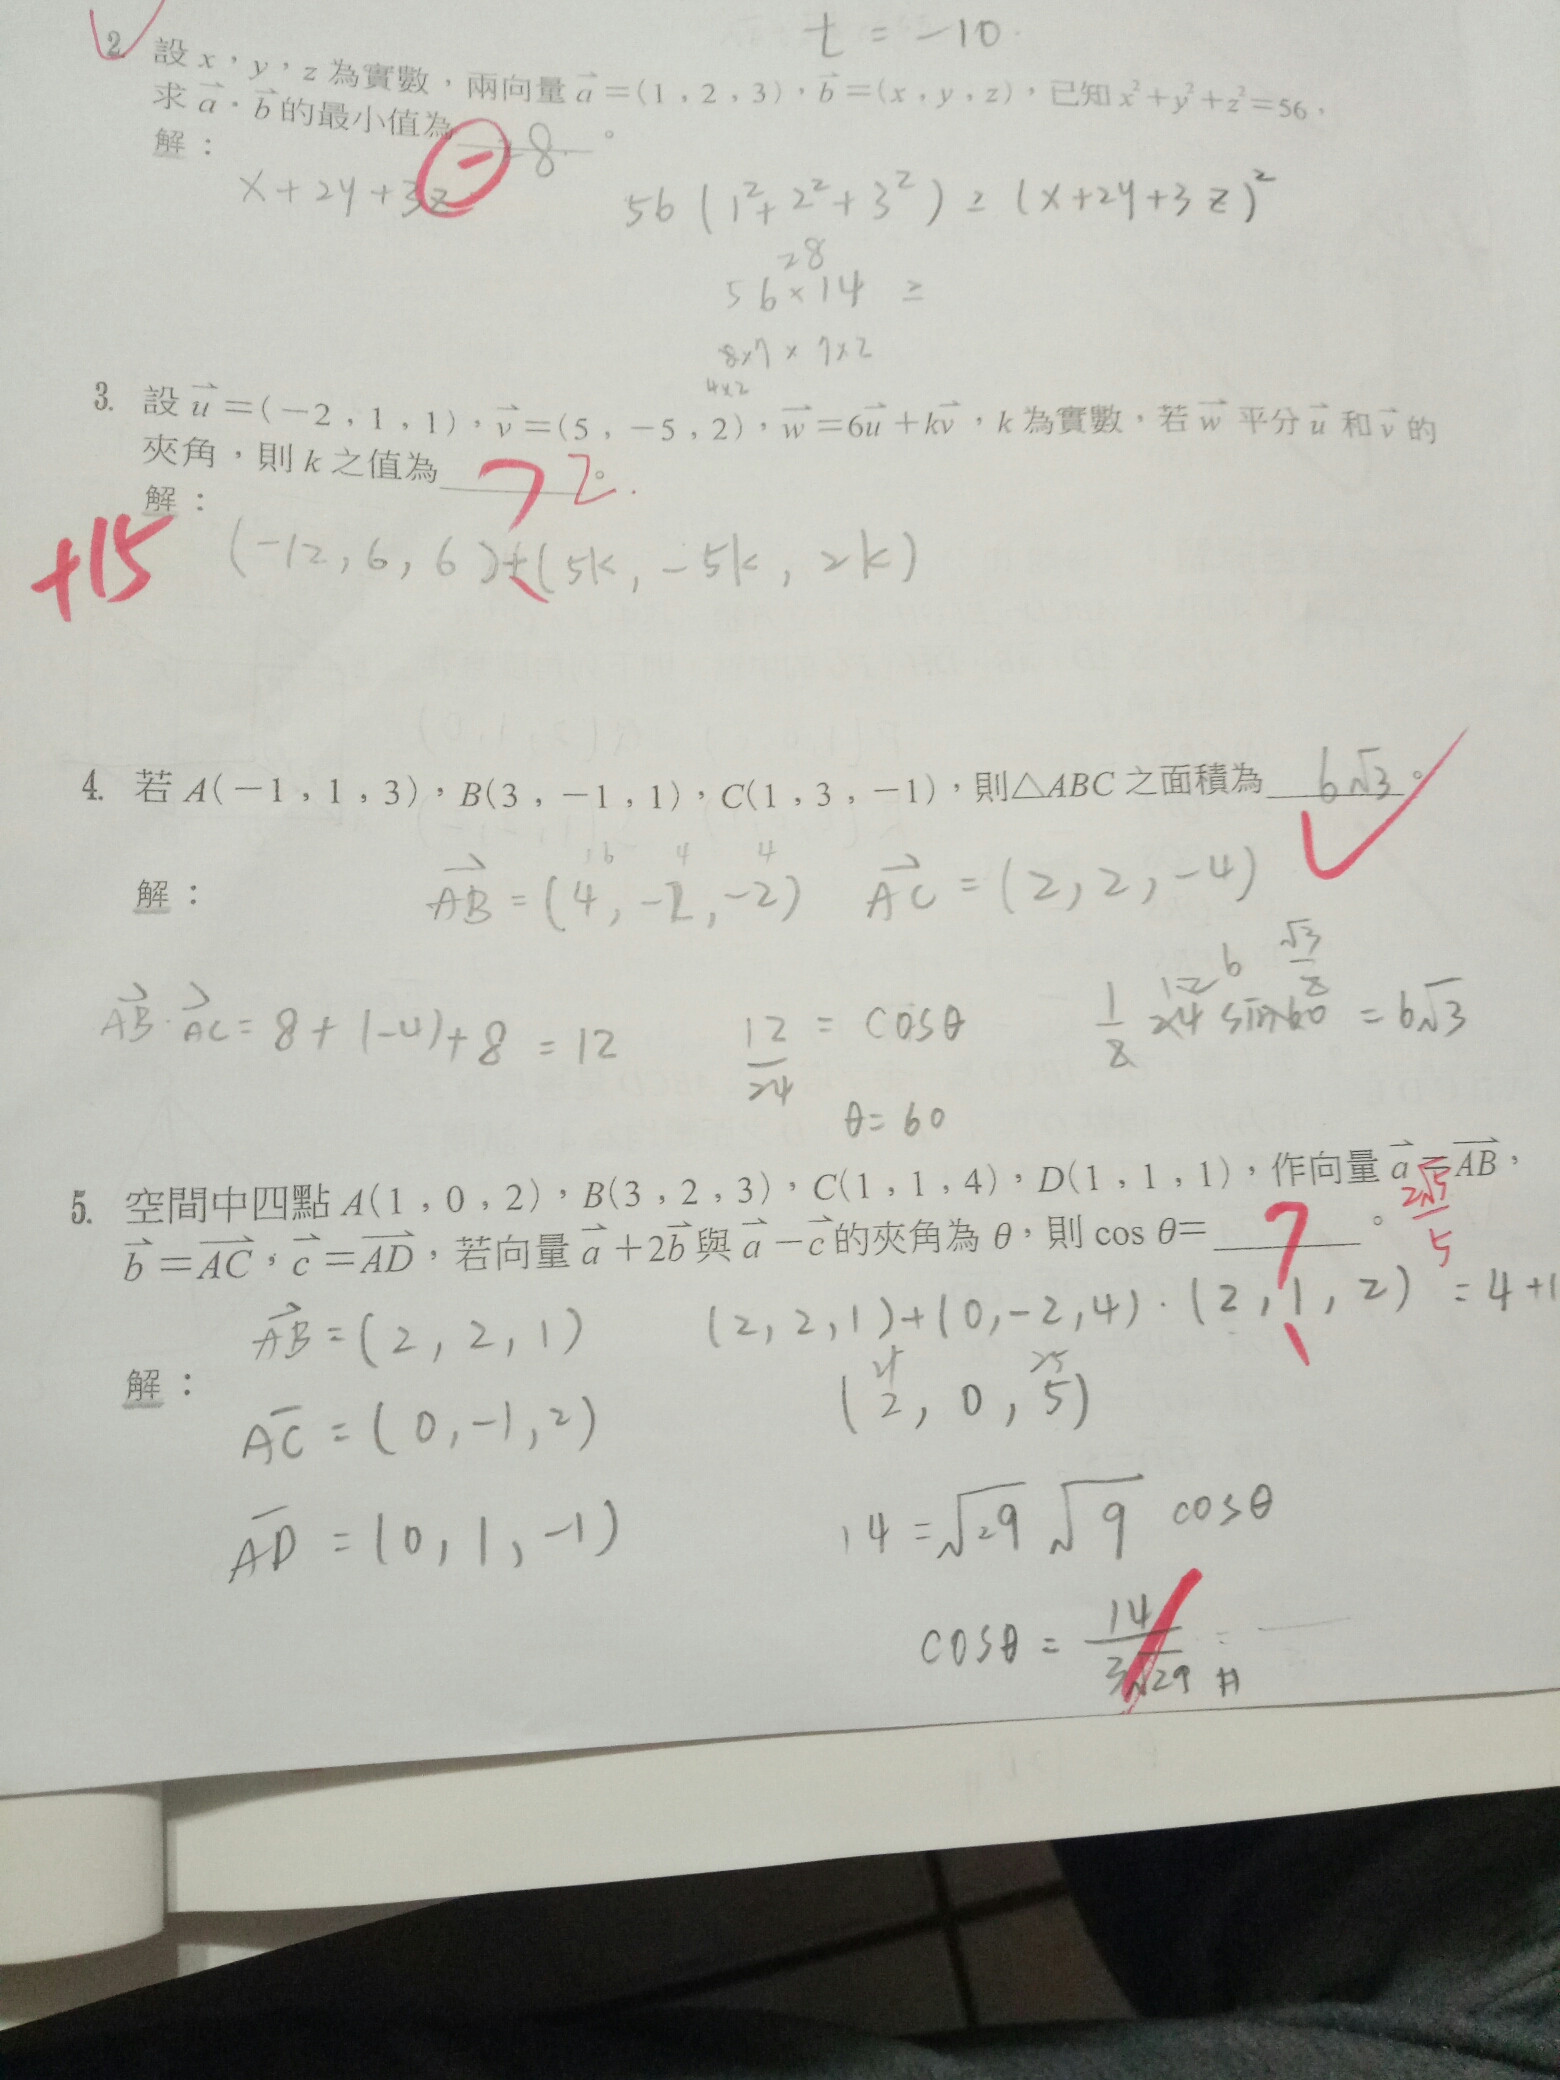 t = -10.
2. 設 x，y，z 為實數，兩向量 a⃗=(1，2，3)，b⃗=(x，y，z)，已知 x²+y²+z²=56，
求 a⃗·b⃗ 的最小值為 -8。
解：
x+2y+3z
56(1²+2²+3²) ≥ (x+2y+3z)²
28
56×14 ≥
8×7×7×2
4×2
3. 設 u⃗=(-2，1，1)，v⃗=(5，-5，2)，w⃗=6u⃗+kv⃗，k 為實數，若 w⃗ 平分 u⃗ 和 v⃗ 的
夾角，則 k 之值為______。 2
解：
+15
(-12, 6, 6)+(5k, -5k, 2k)
4. 若 A(-1，1，3)，B(3，-1，1)，C(1，3，-1)，則△ABC 之面積為 6√3。
16 4 4
解： AB⃗=(4, -2, -2) AC⃗=(2, 2, -4)
12 6 √3/2
AB⃗·AC⃗=8+(-4)+8=12 12/24=cosθ 1/2 24 sin60=6√3
θ=60
5. 空間中四點 A(1，0，2)，B(3，2，3)，C(1，1，4)，D(1，1，1)，作向量 a⃗=AB⃗，
b⃗=AC⃗，c⃗=AD⃗，若向量 a⃗+2b⃗ 與 a⃗-c⃗ 的夾角為 θ，則 cos θ=______。 2√5/5
AB⃗=(2, 2, 1) (2, 2, 1)+(0, -2, 4)·(2, 1, 2)=4+1
解：
25
AC=(0, -1, 2) (2, 0, 5)
AD=(0, 1, -1) 14=√29 √9 cosθ
cosθ=14/3√29 =